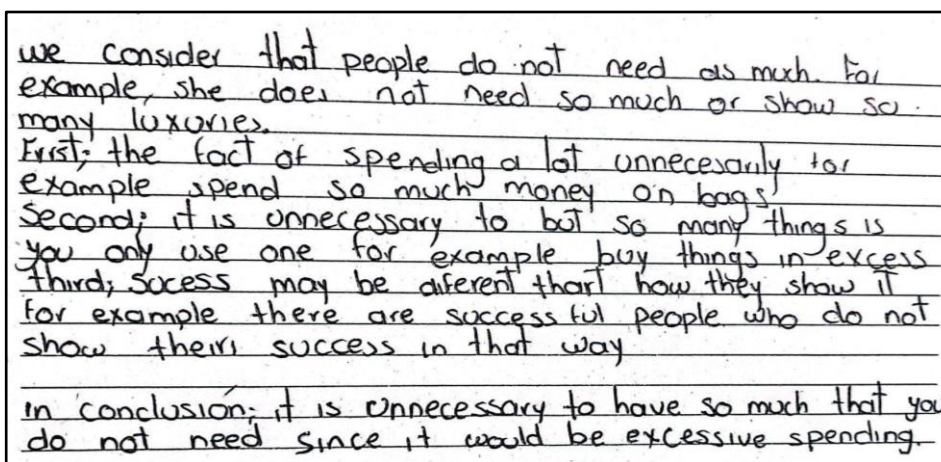 we consider that people do not need as much. For
example, she does not need so much or show so.
many luxuries.
First; the fact of spending a lot unnecesarily for
example spend so much money on bags
Second; it is unnecessary to but so many things is
you only use one for example buy things in excess
third; sucess may be diferent thart how they show it
for example there are successful people who do not
show theirs success in that way
in conclusión; it is unnecessary to have so much that you
do not need since it would be excessive spending.